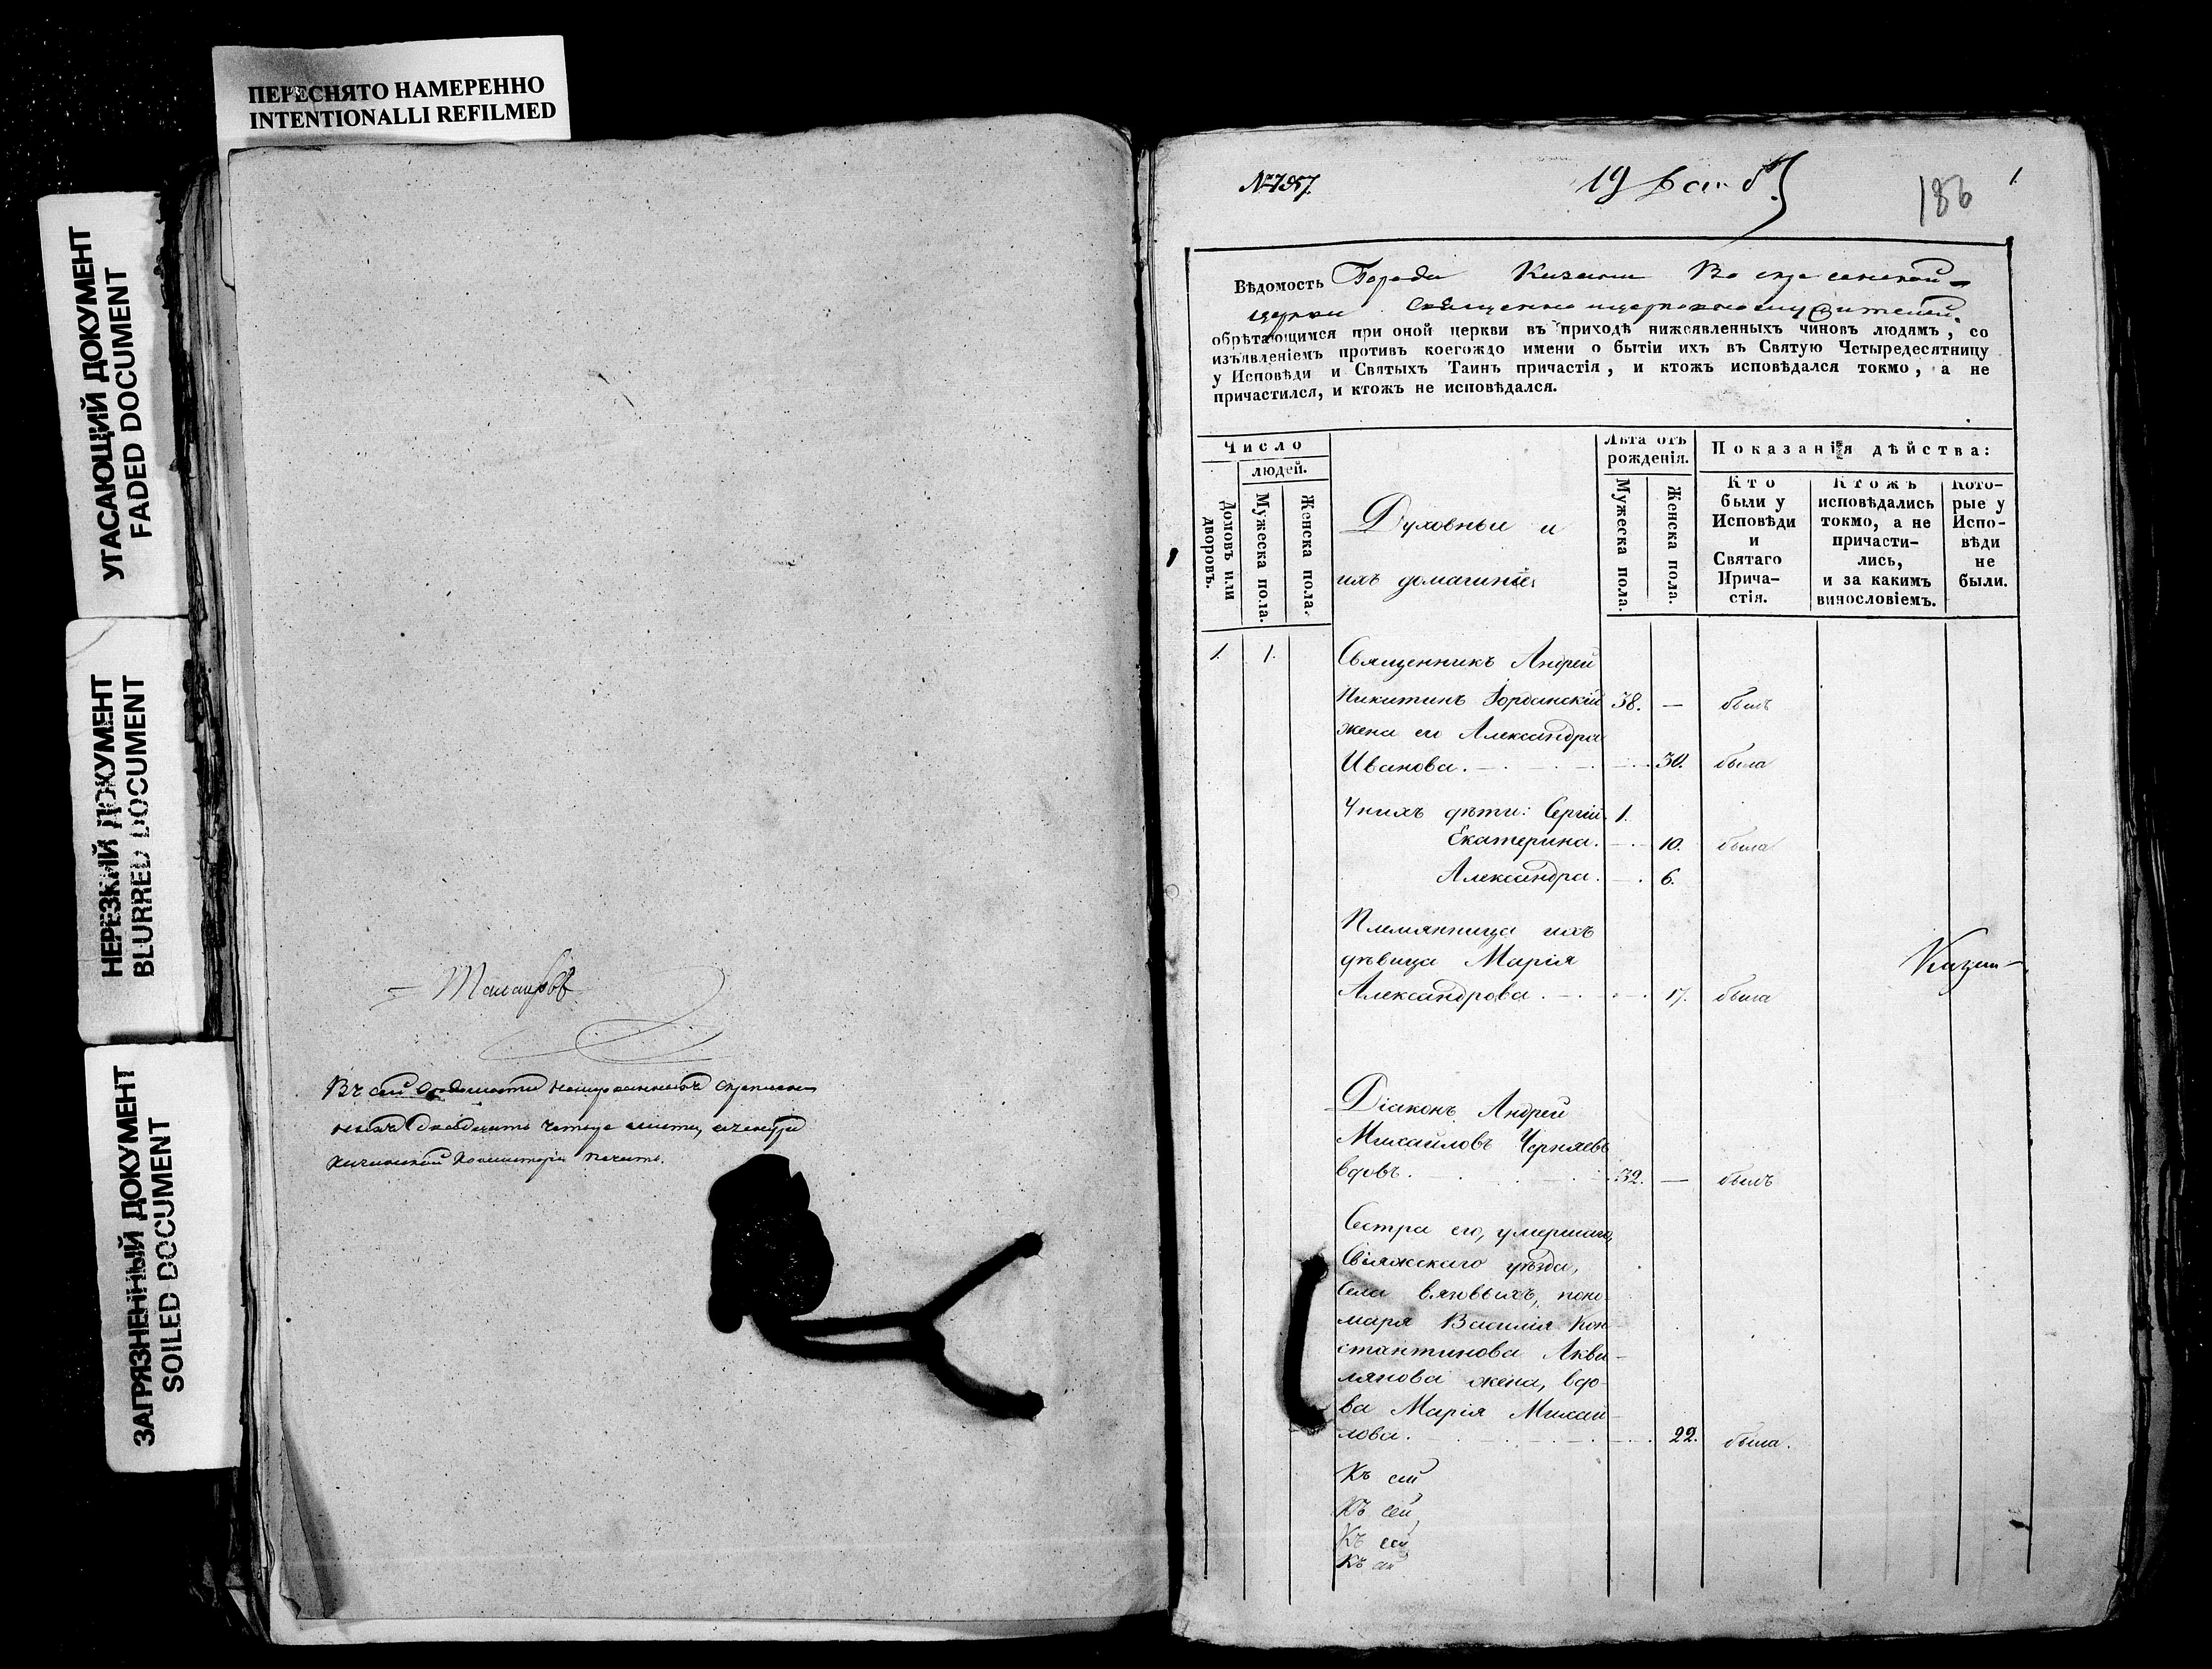 ПЕРЕСНЯТО НАМЕРЕННО
INTENTIONALLI REFILMED
УГАСАЮЩИЙ ДОКУМЕНТ
FADED DOCUMENT
НЕРЕЗКИЙ ДОКУМЕНТ
BLURRED DOCUMENT
ЗАГРЯЗНЕННЫЙ ДОКУМЕНТ
SOILED DOCUMENT
Въ сей
печать.
19
186
1.
Вѣдомость Города Казани Воскресенской
церкви
обрѣтающимся при оной церкви въ приходѣ нижеявленныхъ чиновъ людямъ, со
изъявленіемъ противъ коегождо имени о бытіи ихъ въ Святую Четыредесятницу
у Исповѣди и Святыхъ Таинъ причастія, и ктожъ исповѣдался токмо, а не
причастился, и ктожъ не исповѣдался.
Число
людей.
Домовъ или дворовъ.
Мужеска пола.
Женска пола.
Духовные и
ихъ домашніе,
Лѣта отъ
рожденія.
Мужеска пола.
Женска пола.
Показанія дѣйства:
Кто
были у
Исповѣди
и
Святаго
Прича-
стія.
Ктожъ
исповѣдались
токмо, а не
причасти-
лись,
и за какимъ
винословіемъ.
Кото-
рые у
Испо-
вѣди
не
были.
1. 1. Священникъ Андрей
Никитинъ Іорданскій 38. — былъ
жена его Александра
Иванова. 30. была
У нихъ дѣти: Сергій. 1.
Екатерина. 10. была
Александра. 6.
Племянница ихъ
дѣвица Марія
Александрова. 17. была
Казан-
Діаконъ Андрей
Михайловъ Черняевъ
вдовъ. 32. — былъ
Сестра его, умершаго,
Свіяжскаго уѣзда,
Села Вязовыхъ, поно-
маря Василія Кон-
стантинова Аква-
лянова жена, вдо-
ва Марія Михай-
лова. 22. была.
Къ сей
Къ сей
Къ сей
Къ сей